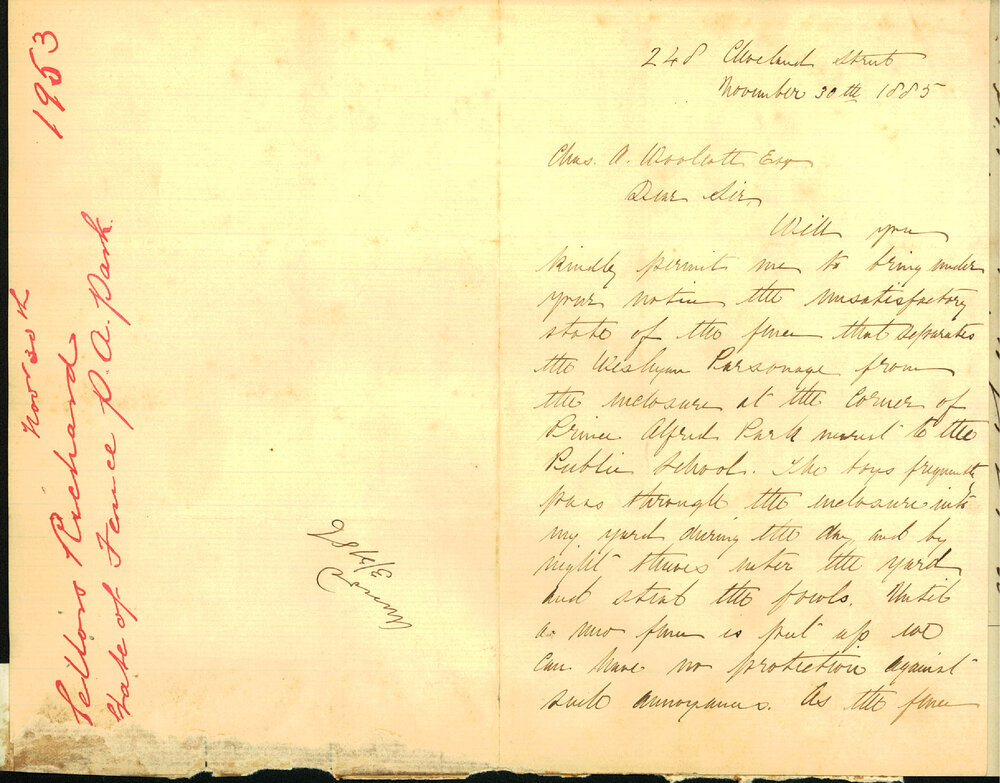 1953
Sellors Richard Nov 30th
State of Fence P.A. Park.
3/4/86
248 Cleveland Street
November 30th 1885
Chas. A. Woolcott Esq
Dear Sir,
Will you
kindly permit me to bring under
your notice the unsatisfactory
state of the fence that separates
the Wesleyan Parsonage from
the inclosure at the Corner of
Prince Alfred Park nearest to the
Public School. The boys frequently
pass through the inclosure into
my yard during the day, and by
night thieves enter the yard
and steal the fowls. Until
a new fence is put up we
can have no protection against
such annoyances. As the fence